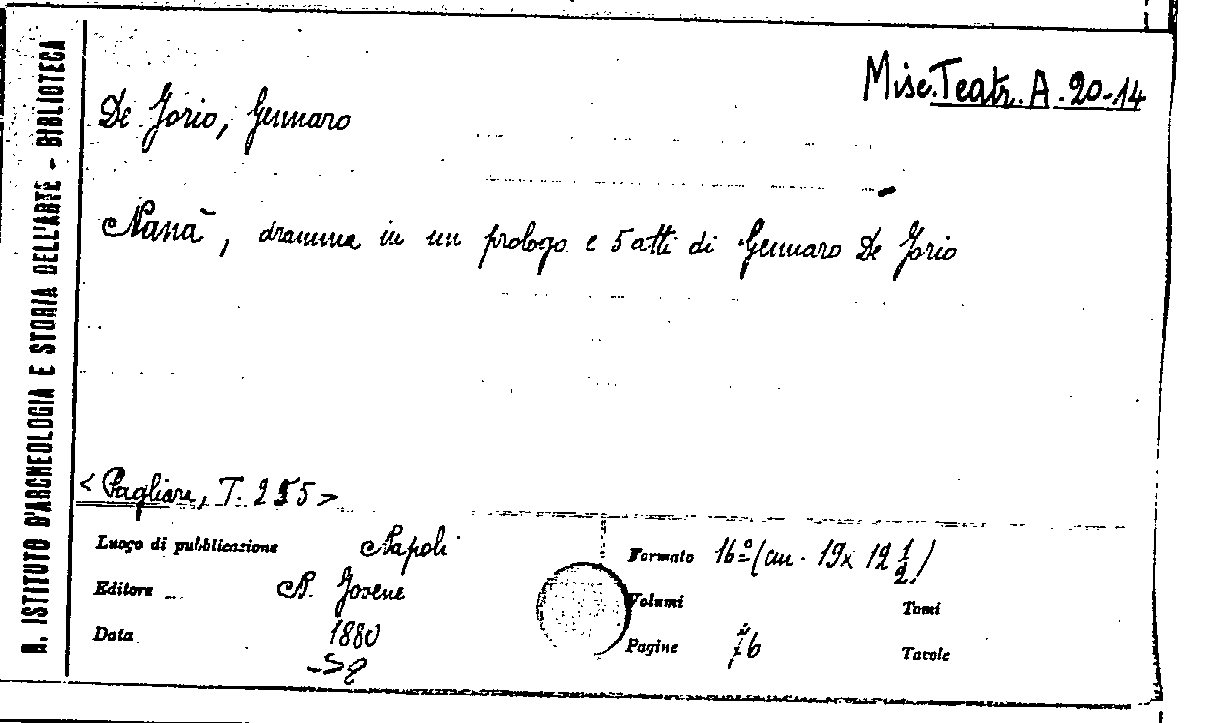 R. ISTITUTO D'ARCHEOLOGIA E STORIA DELL'ARTE - BIBLIOTECA
Misc. Teatr. A. 20-14
De Jorio, Gennaro
Nanà, dramma in un prologo e 5 atti di Gennaro De Jorio
<Pagliare, T. 255>
Luogo di pubblicazione Napoli
Editore N. Jovene
Data 1880
Formato 16º (cm. 19x 12 1/2)
Volumi Tomi
Pagine 76 Tavole